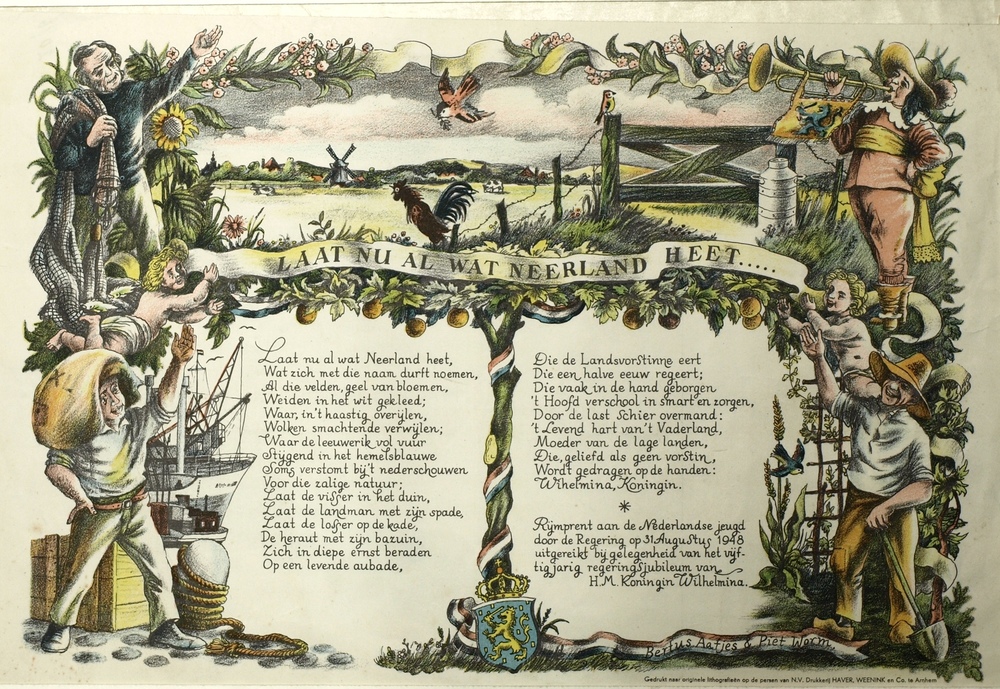 LAAT NU AL WAT NEERLAND HEET.....
Laat nu al wat Neerland heet,
Wat zich met die naam durft noemen,
Al die velden, geel van bloemen,
Weiden in het wit gekleed;
Waar, in't haastig overijlen,
Wolken smachtende verwijlen;
Waar de leeuwerik vol vuur
Stijgend in het hemelsblauwe
Soms verstomt bij't nederschouwen
Voor die zalige natuur;
Laat de visser in het duin,
Laat de landman met zijn spade,
Laat de losser op de kade,
De heraut met zijn bazuin,
Zich in diepe ernst beraden
Op een levende aubade,
Die de Landsvorstinne eert
Die een halve eeuw regeert;
Die vaak in de hand geborgen
't Hoofd verschool in smart en zorgen,
Door de last schier overmand:
't Levend hart van 't Vaderland,
Moeder van de lage landen,
Die, geliefd als geen vorstin,
Wordt gedragen op de handen:
Wilhelmina, Koningin.
*
Rijmprent aan de Nederlandse jeugd
door de Regering op 31 Augustus 1948
uitgereikt bij gelegenheid van het vijf-
tigjarig regeringsjubileum van
H.M. Koningin Wilhelmina.
Bertus Aafjes & Piet Worm.
Gedrukt naar originele lithografieën op de persen van N.V. Drukkerij HAVER, WEENINK en Co. te Arnhem